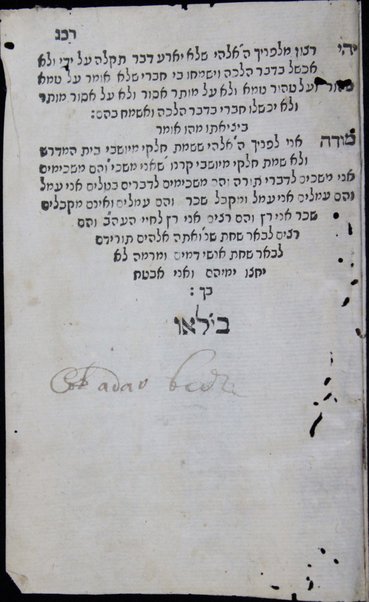 רכג
יהי רצון מלפניך ה׳ אלהי שלא יארע דבר תקלה על ידי ולא
אכשל בדבר הלכה וישמחו בי חברי שלא אומר על טמא
טהור ועל טהור טמא ולא על מותר אסור ולא על אסור מותר
ולא יכשלו חברי בדבר הלכה ואשמח בהם :
ביציאתו מהו אומר
מודה אני לפניך ה׳ אלהי ששמת חלקי מיושבי בית המדרש
ולא שמת חלקי מיושבי קרנו׳ שאני משכי׳ והם משכימים
אני משכים לדברי תורה והם משכימים לדברים בטלים אני עמל
והם עמלים אני עמל ומקבל שכר והם עמלים ואינם מקבלים
שכר אני רץ והם רצים אני רץ לחיי העה״ב והם
רצים לבאר שחת שנ׳ ואתה אלהים תורידם
לבאר שחת אנשי דמים ומרמה לא
יחצו ימיהם ואני אבטח
בך :
בילאו